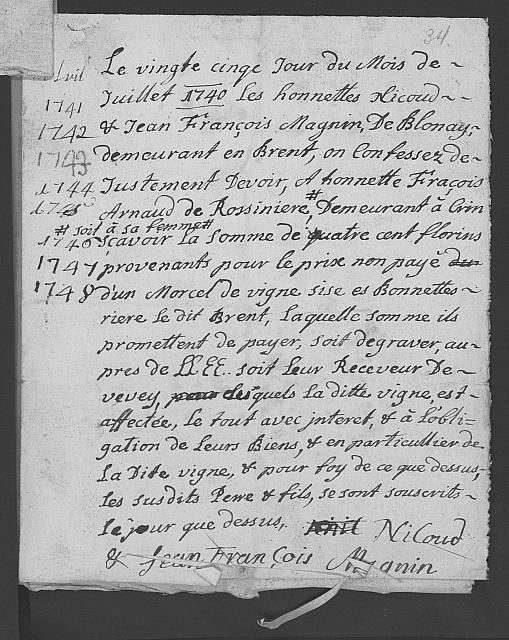 34.
Le vingte cinqe Jour du Mois de~
Juillet 1740 Les honnettes Nicoud~
& Jean François Magnin, De Blonay,
demeurant en Brent, on Confessez de-
Justement Devoir, A honnette Fraçois
Arnaud de Rossiniere,# Demeurant à Crin
# soit à sa femme #
scavoir La somme de quatre cent florins
provenants pour le prix non payé du
d'un Morcel de vigne sise es Bonnettes-
riere le dit Brent, Laquelle somme ils
promettent de payer, soit degraver, au-
pres de LL.EE. soit Leur Receveur De-
vevey, quels La ditte vigne, est-
affectée, Le tout avec jnteret, & à L'obli=
gation de Leurs Biens, & en particullier de
La Dite vigne, & pour foy de ce que dessus,
les susdits Pere & fils, se sont souscrits-
le jour que dessus, Nicoud
& Jean François Magnin
1741
1742
1743
1744
1745
1746
1747
1748